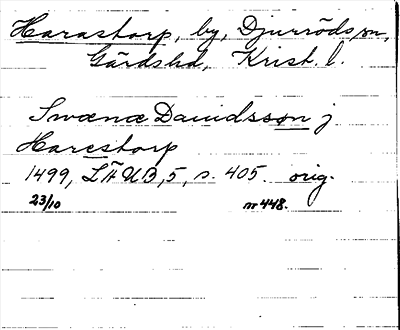 Harastorp, by, Djurröds sn,
Gärds hd, Krist. l.
Swænæ Dauidsson j
Harestorp
1499, LÄUB, 5, s. 405. orig.
23/10 nr 448.